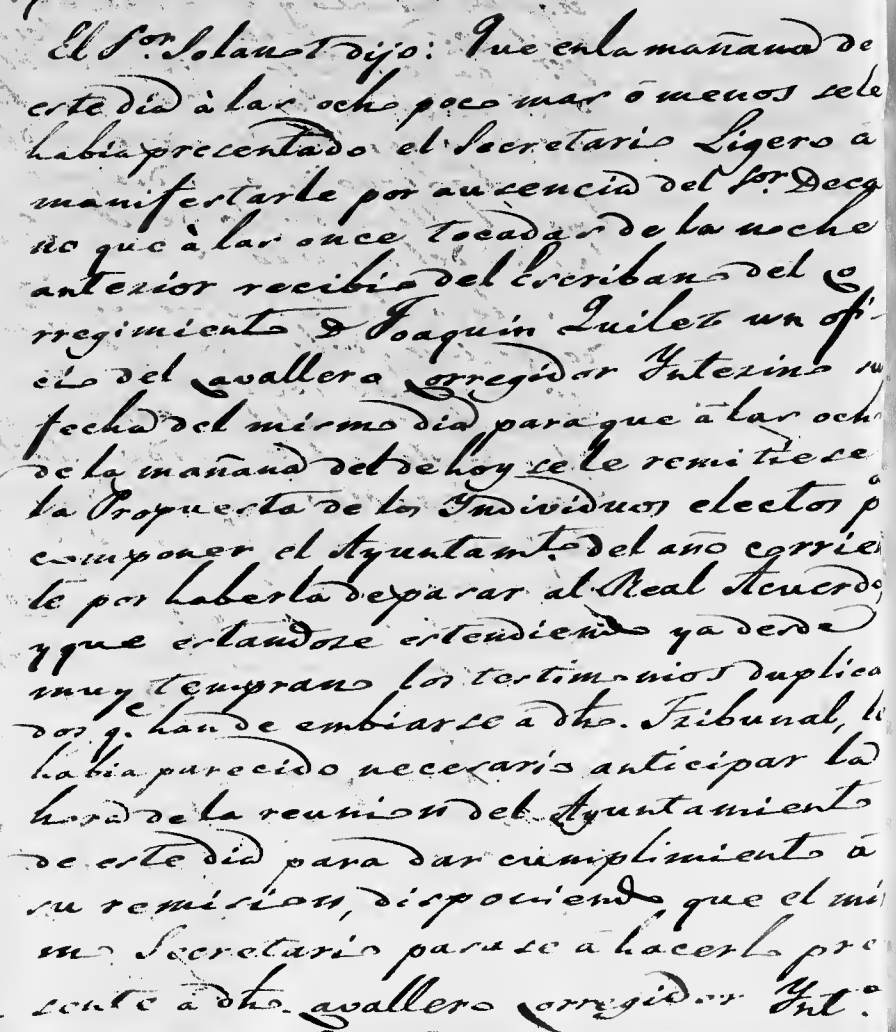 El S.or Solanot dijo: Que en la mañana de
este dia à las ocho poco mas ō menos se le
habia presentado el Secretario Ligero a
manifestarle por ausencia del S.or Deca
no que à las once tocadas de la noche
anterior recibio del Escribano del Co
rregimiento D.n Joaquin Quilez un ofi-
cio del Cavallero Corregidor Ynterino su
fecha del mismo dia para que à las ocho
de la mañana del de hoy se le remitiese
la Propuesta de los Yndividuos electos p.a
componer el Ayuntam.to del año corrien
te por haberla de pasar al Real Acuerdo,
y que estandose estendiendo ya desde
muy temprano los testimonios duplica
dos q.e han de embiarse a dho. Tribunal, le
habia parecido necesario anticipar la
hora de la reunion del Ayuntamiento
de este dia para dar cumplimiento à
su remision, disponiendo que el mis
mo Secretario pasase à hacerlo pre
sente à dho. Cavallero Corregidor Ynt.o